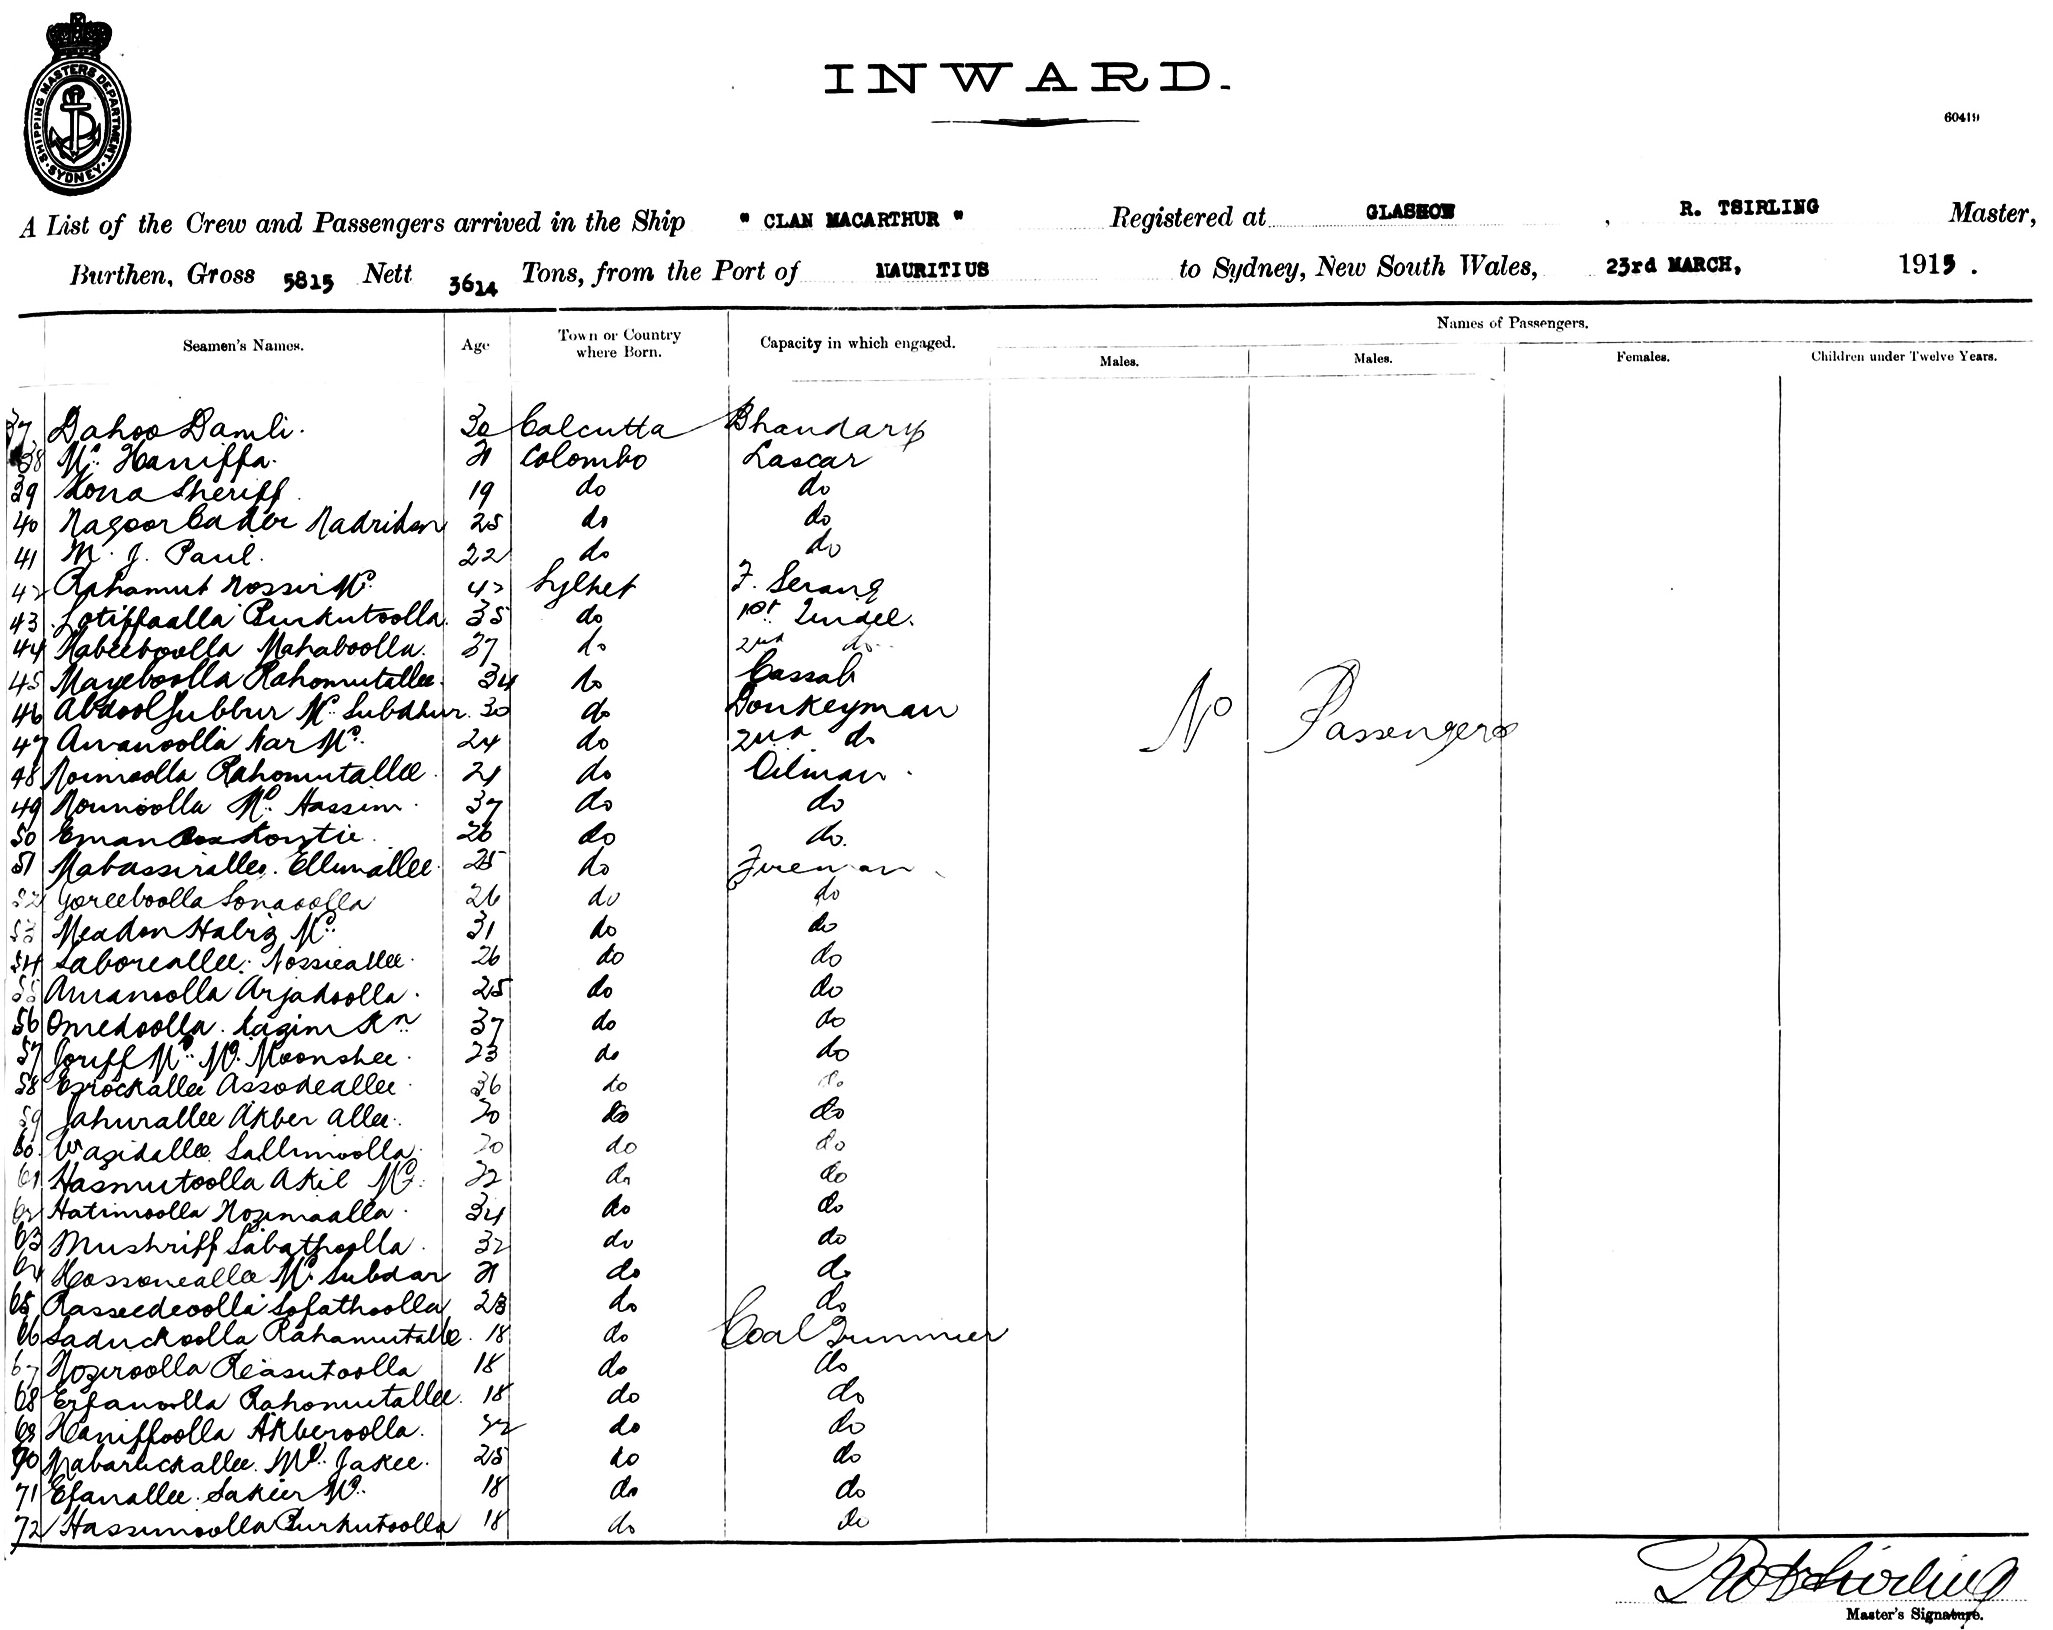 SHIPPING MASTERS DEPARTMENT · SYDNEY ·
INWARD.
60419
A List of the Crew and Passengers arrived in the Ship " CLAN MACARTHUR " Registered at GLASGOW , R. TSIRLING Master,
Burthen, Gross 5815 Nett 3614 Tons, from the Port of MAURITIUS to Sydney, New South Wales, 23rd MARCH, 1915.
Names of Passengers.
Seamen's Names. Age Town or Country where Born. Capacity in which engaged. Males. Males. Females. Children under Twelve Years.
37 Dahoo Damli. 30 Calcutta Bhandary
38 Md. Haniffa. 21 Colombo Lascar
39 Kona Sheriff 19 do do
40 Nagoor Cader 25 do do
41 M. J. Paul. 22 do do
42 Rahamut Nossir Md. 42 Sylhet F. Serang
43 Lotiffoalla Burkutoolla. 35 do 1st Tindel.
44 Habeeboolla Mahaboolla. 37 do 2nd do.
45 Mayeboolla Rahomutallee. 34 do Cassab
46 Abdool Jubbur Md. Subdhur. 30 do Donkeyman
47 Amanoolla Md. 24 do 2nd do
48 Noimoolla Rahomutallee. 21 do Oilman.
49 Nounoolla Md. Hassim. 37 do do
50 Eman 26 do do.
51 Mabassirallee. Ellimallee. 25 do Fireman
52 Goreeboolla Sonaoolla 26 do do
53 Meadon Habiz Md. 31 do do
54 Saboreallee. Nossieallee. 26 do do
55 Amanoolla Arjadoolla. 25 do do
56 Omedoolla. Kazim Kn 37 do do
57 Joriff Md. Md. Moonshee. 23 do do
58 Erockallee Assodeallee. 36 do do
59 Jahurallee Akber allee. 30 do do
60 Wazidallee Sallimoolla. 30 do do
61 Hasmutoolla Akil Md. 32 do do
62 Hatimoolla Nozimaalla. 34 do do
63 Mushriff Sabathoolla. 32 do do
64 Hossoneallee Md. Subdar 21 do do
65 Rasseedeoolla Sofathoolla 28 do do
66 Saduckoolla Rahamutalle. 18 do Coal Trimmer
67 Noziroolla Reasutoolla 18 do do
68 Erfanoolla Rahomutallee. 18 do do
69 Haniffoolla Akberoolla. 22 do do
70 Mabaruckallee. Md. Jakee. 25 do do
71 Efanallee. Sakier Md. 18 do do
72 Hassimoolla Burkutoolla 18 do do
No Passengers
Robt Stirling
Master's Signature.